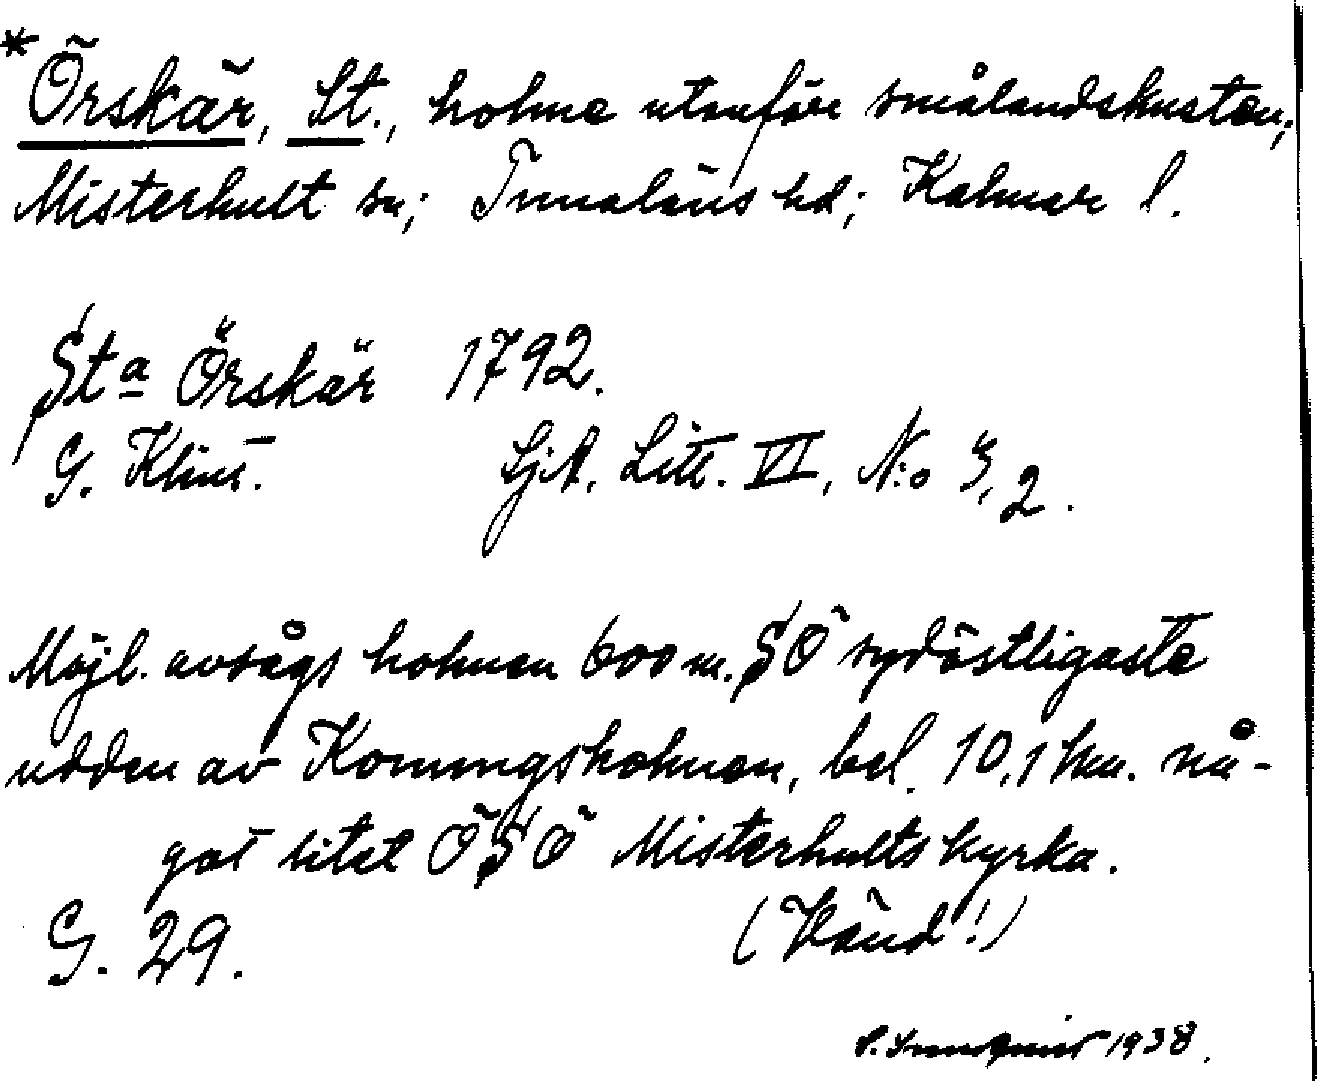 *Örskär, St., holme utanför smålandskusten;
Misterhult sn; Tunaläns hd; Kalmar l.
Sta Örskär 1792.
G. Klint. SjA. Litt. VI, N:o 3,2.
Möjl. avsågs holmen 600 m. SÖ sydöstligaste
udden av Korningsholmen, bel. 10,1 km. nå-
got litet ÖSÖ Misterhults kyrka.
G. 29. (Vänd!)
1938.